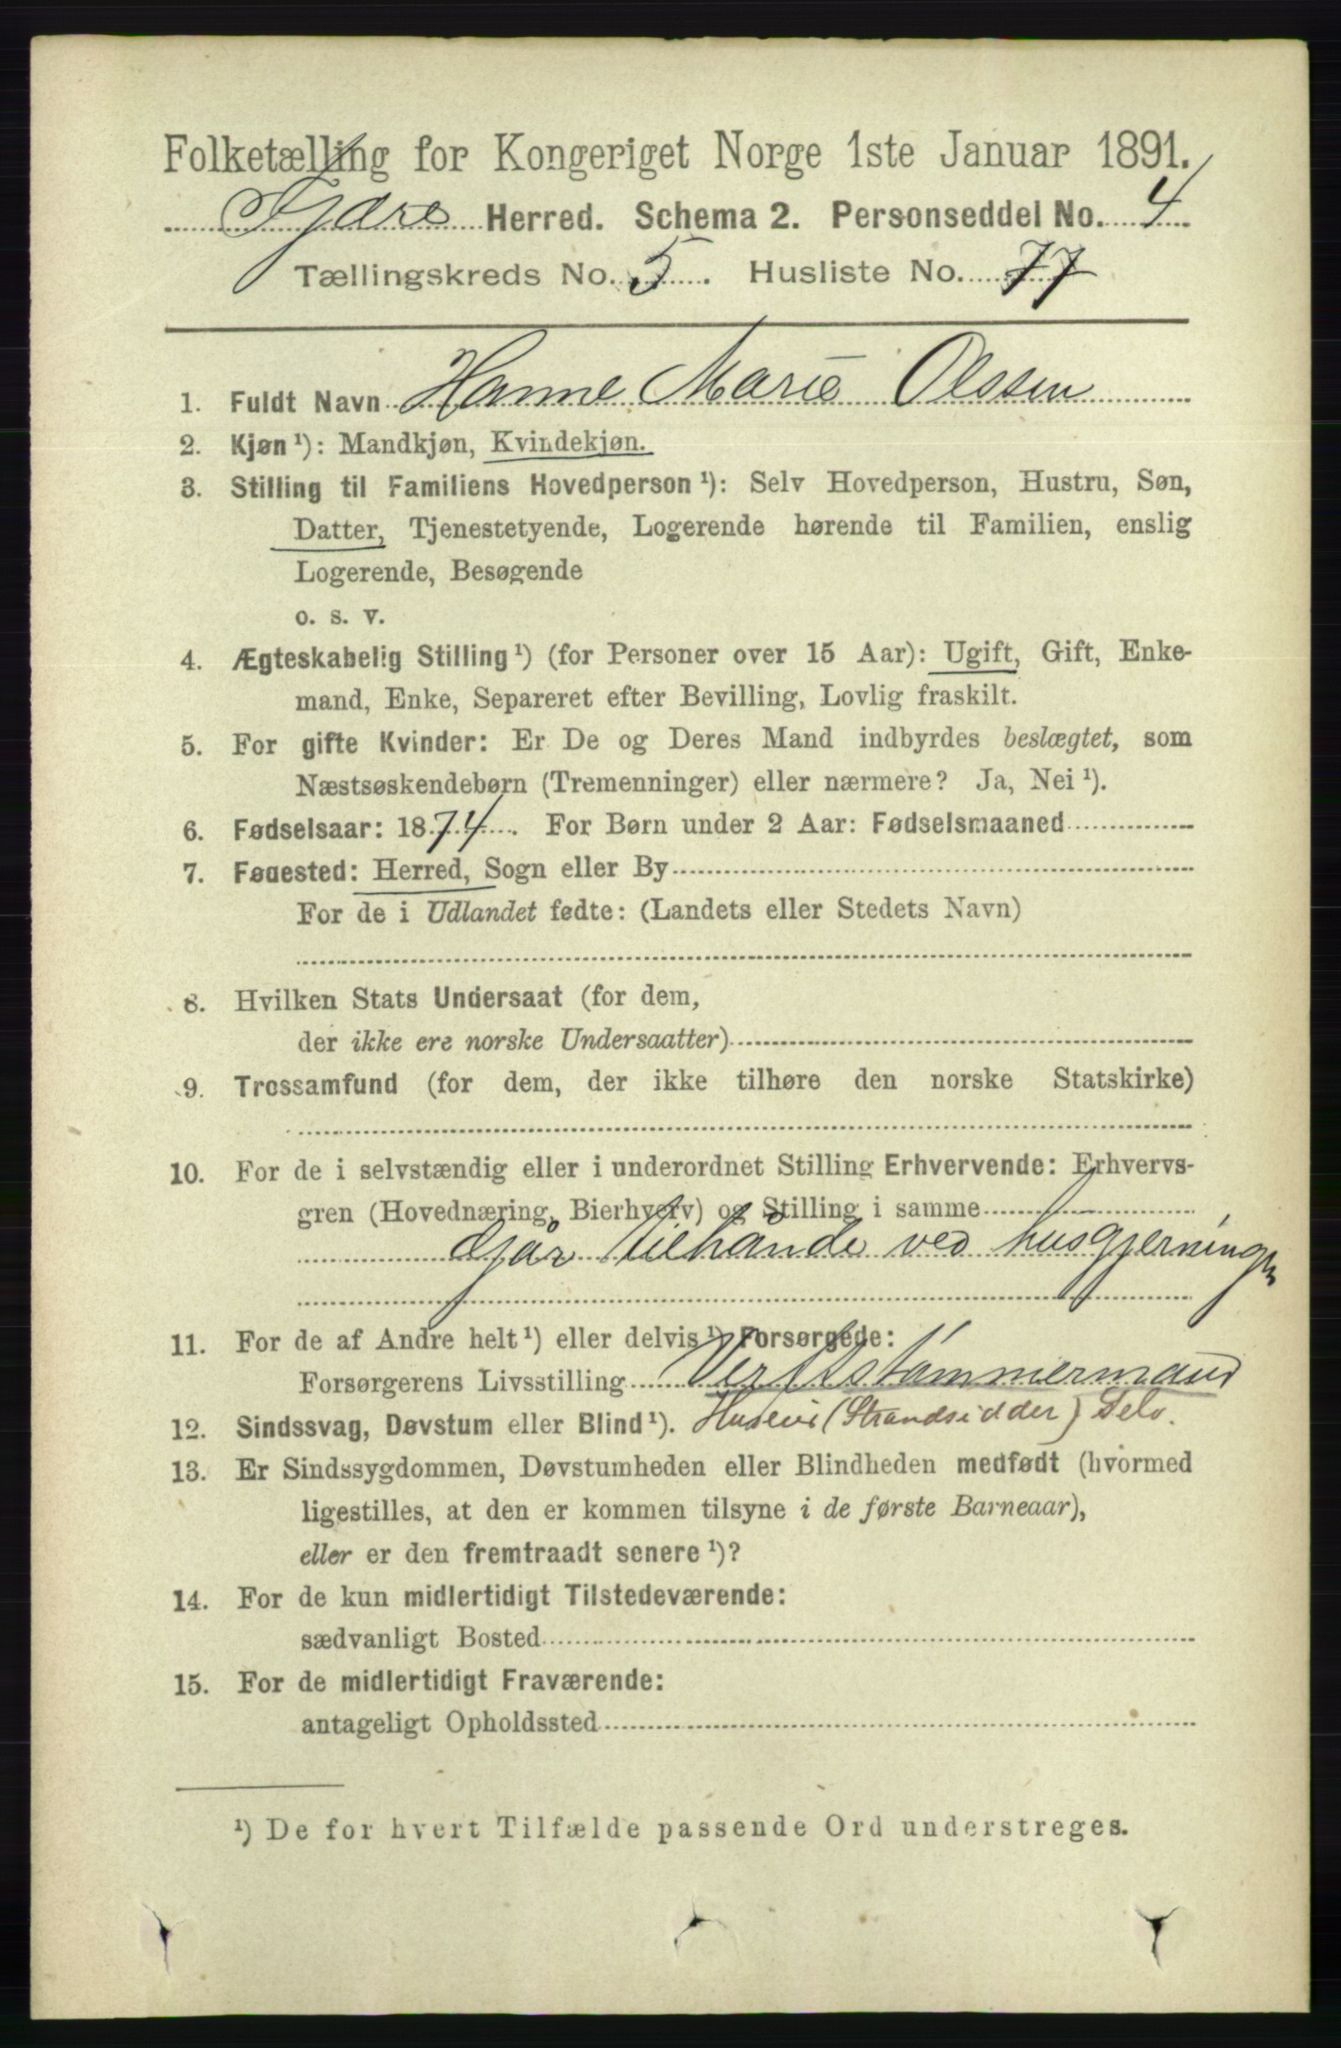 Folketælling for Kongeriget Norge 1ste Januar 1891.
Fjære Herred. Schema 2. Personseddel No. 4
Tællingskreds No. 5. Husliste No. 77
1. Fuldt Navn Hanne Marie Olssen
2. Kjøn ¹): Mandkjøn, Kvindekjøn.
3. Stilling til Familiens Hovedperson ¹): Selv Hovedperson, Hustru, Søn,
Datter, Tjenestetyende, Logerende hørende til Familien, enslig
Logerende, Besøgende
o. s. v.
4. Ægteskabelig Stilling ¹) (for Personer over 15 Aar): Ugift, Gift, Enke-
mand, Enke, Separeret efter Bevilling, Lovlig fraskilt.
5. For gifte Kvinder: Er De og Deres Mand indbyrdes beslægtet, som
Næstsøskendebørn (Tremenninger) eller nærmere? Ja, Nei ¹).
6. Fødselsaar: 1874. For Børn under 2 Aar: Fødselsmaaned
7. Fødested: Herred, Sogn eller By
For de i Udlandet fødte: (Landets eller Stedets Navn)
8. Hvilken Stats Undersaat (for dem,
der ikke ere norske Undersaatter)
9. Trossamfund (for dem, der ikke tilhøre den norske Statskirke)
10. For de i selvstændig eller i underordnet Stilling Erhvervende: Erhvervs-
gren (Hovednæring, Bierhverv) og Stilling i samme
Gjør tilhånde ved husgjerningen
11. For de af Andre helt ¹) eller delvis ¹) Forsørgede:
Forsørgerens Livsstilling Verftstømmermand
12. Sindssvag, Døvstum eller Blind ¹). Huseier (Strandsidder) Selv.
13. Er Sindssygdommen, Døvstumheden eller Blindheden medfødt (hvormed
ligestilles, at den er kommen tilsyne i de første Barneaar),
eller er den fremtraadt senere ¹)?
14. For de kun midlertidigt Tilstedeværende:
sædvanligt Bosted
15. For de midlertidigt Fraværende:
antageligt Opholdssted
¹) De for hvert Tilfælde passende Ord understreges.